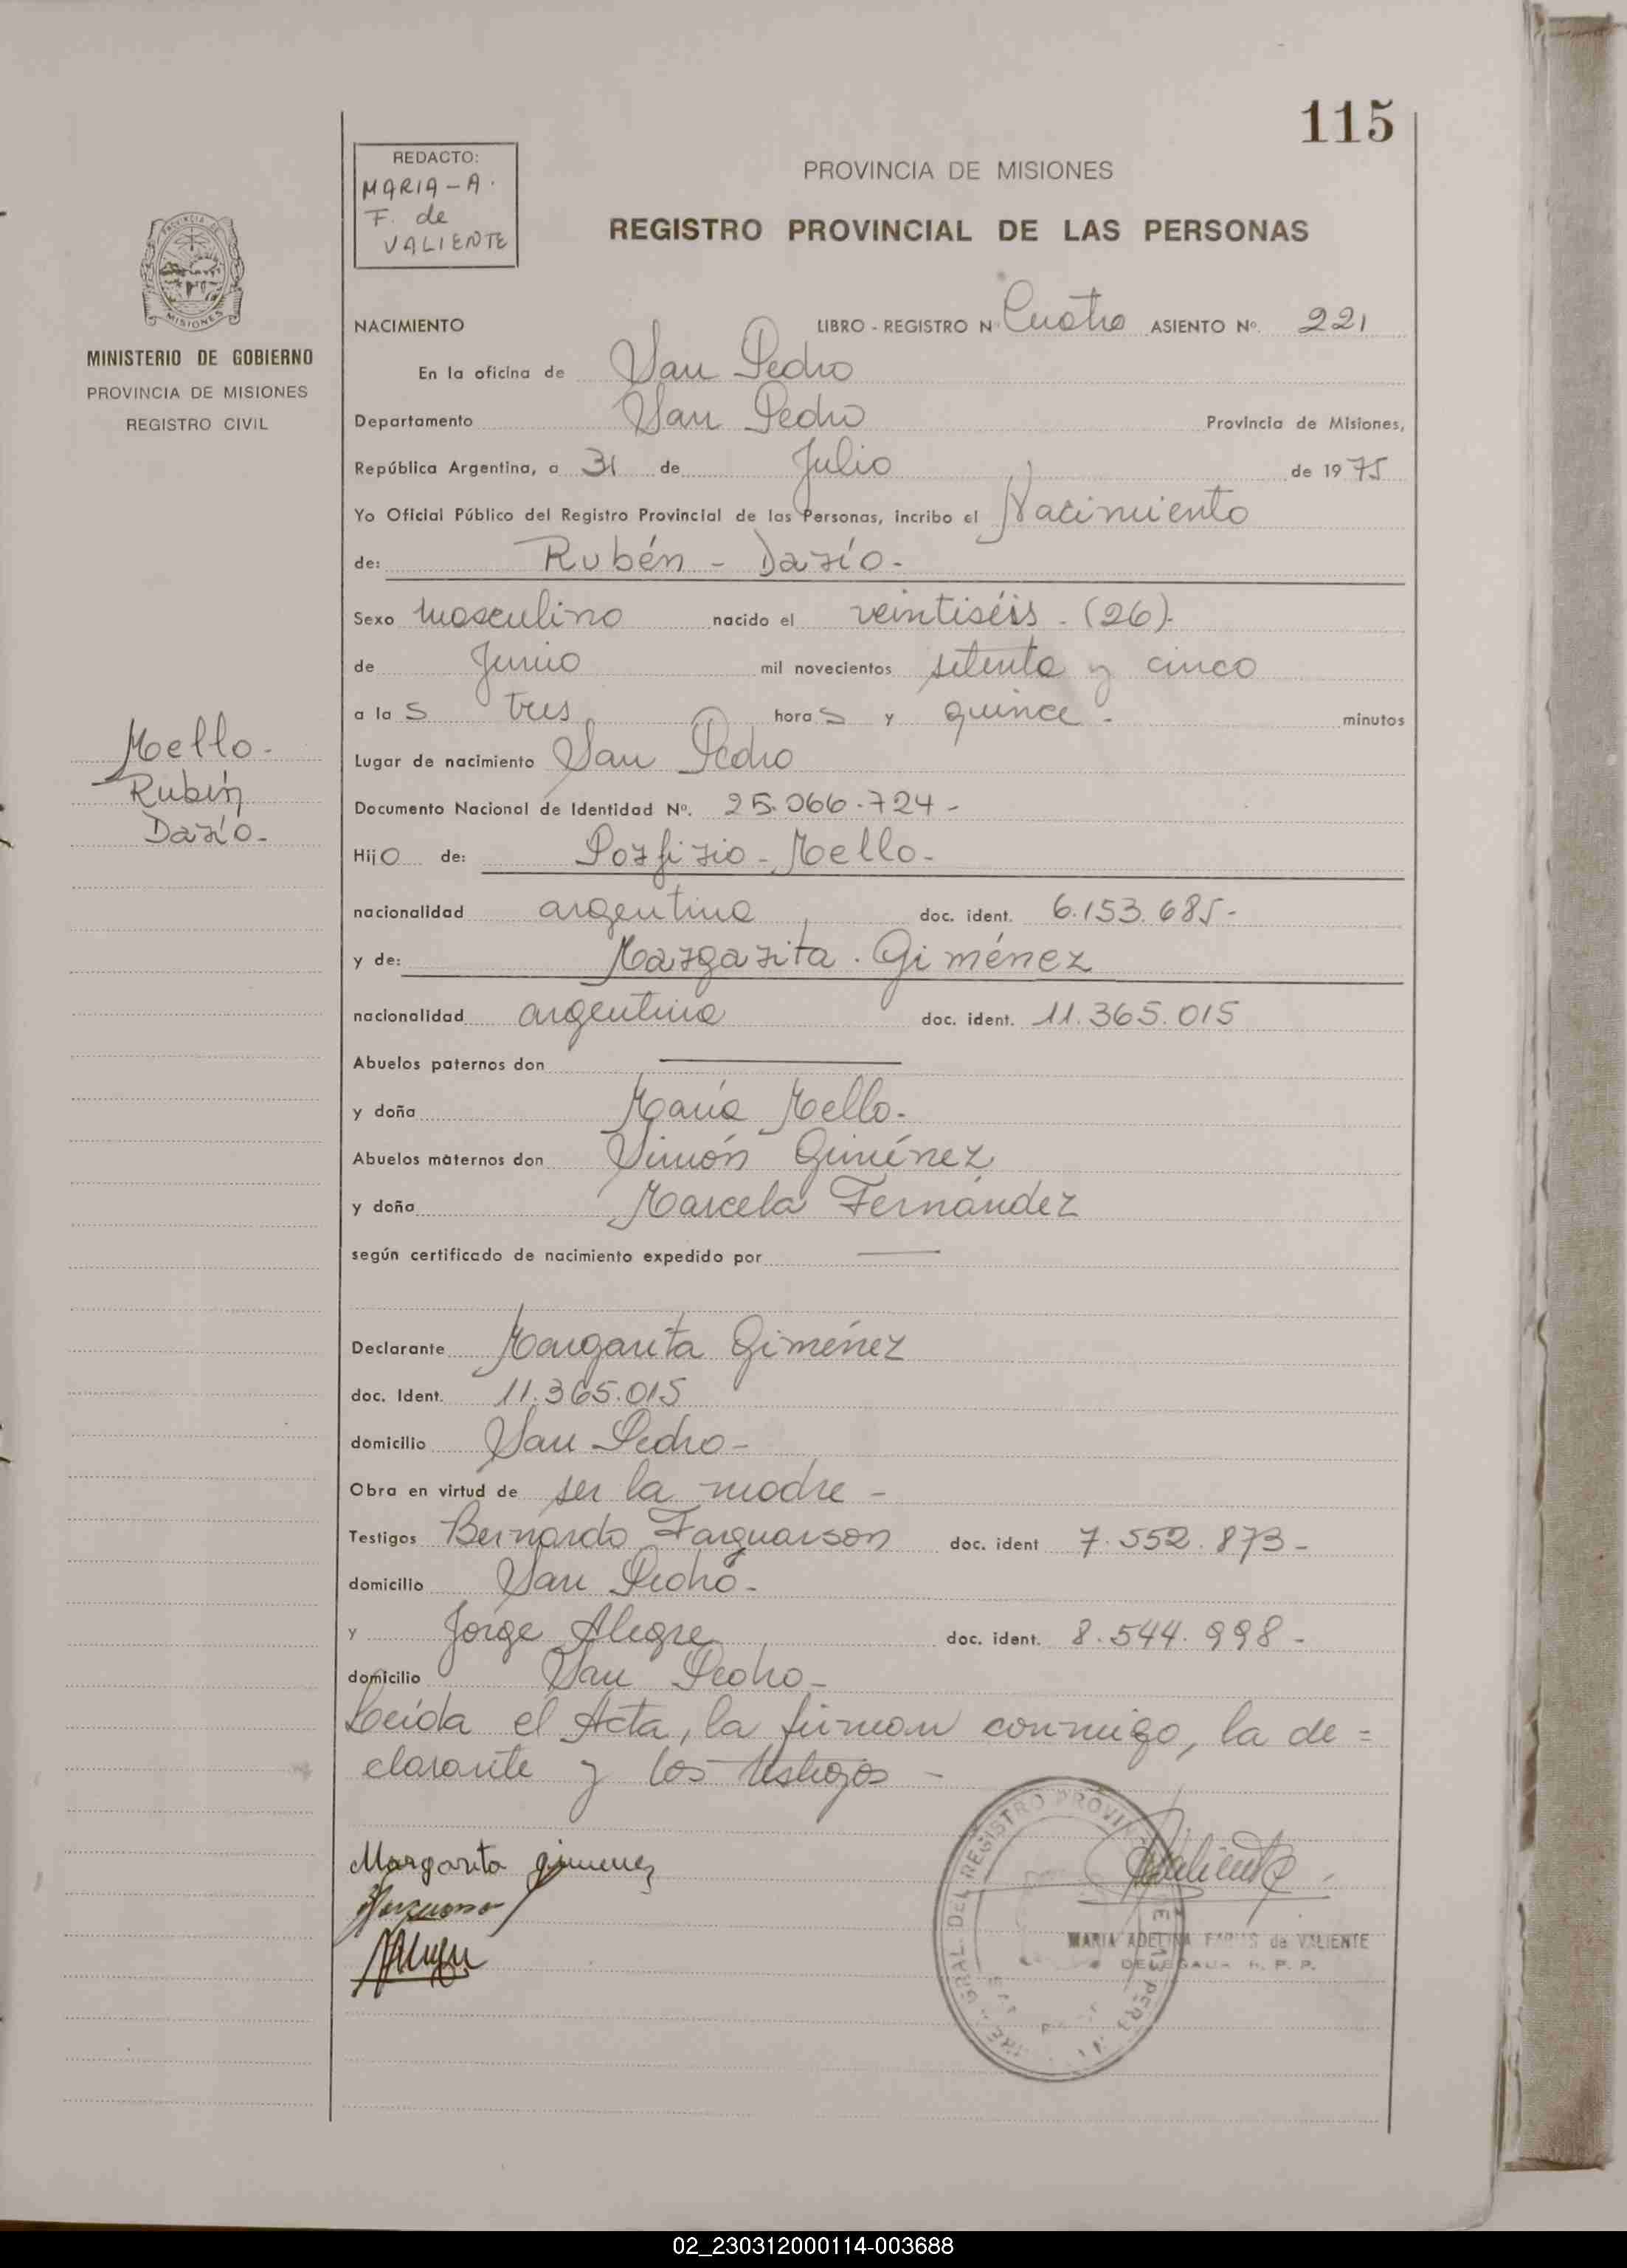 115
REDACTO:
MARIA-A.
F. de
VALIENTE
PROVINCIA DE MISIONES
REGISTRO PROVINCIAL DE LAS PERSONAS
PROVINCIA DE
MISIONES
MINISTERIO DE GOBIERNO
PROVINCIA DE MISIONES
REGISTRO CIVIL
NACIMIENTO LIBRO - REGISTRO N° Cuatro ASIENTO Nº. 221
En la oficina de San Pedro
Departamento San Pedro Provincia de Misiones,
República Argentina, a 31 de Julio de 1975
Yo Oficial Público del Registro Provincial de las Personas, incribo el Nacimiento
de: Rubén - Darío -
Sexo masculino nacido el veintiséis - (26).
de Junio mil novecientos setenta y cinco
a la s tres hora s y quince - minutos
Mello -
Rubén
Darío -
Lugar de nacimiento San Pedro
Documento Nacional de Identidad Nº. 25.066.724 -
Hijo de: Porfirio - Mello -
nacionalidad argentina doc. ident. 6.153.685 -
y de: Margarita . Giménez
nacionalidad argentina doc. ident. 11.365.015
Abuelos paternos don
y doña María Mello -
Abuelos maternos don Simón Giménez
y doña Marcela Fernández
según certificado de nacimiento expedido por
Declarante Margarita Giménez
doc. Ident. 11.365.015
domicilio San Pedro -
Obra en virtud de ser la madre -
Testigos Bernardo Farquarson doc. ident 7.552.873 -
domicilio San Pedro -
y Jorge Alegre doc. ident. 8.544.998 -
domicilio San Pedro -
Leída el Acta, la firman conmigo, la de =
clarante y los testigos -
Margarita gimenez
Valiente
MARIA ADELINA FARIAS de VALIENTE
DELEGADA R. P. P.
GRAL. DEL REGISTRO PROVIN
02_230312000114-003688